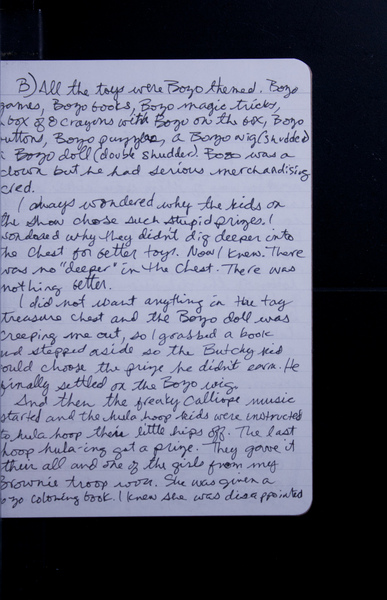 B) All the toys were Bozo themed. Bozo
games, Bozo books, Bozo magic tricks,
box of 8 crayons with Bozo on the box, Bozo
buttons, Bozo puzzles, a Bozo wig (shudder)
a Bozo doll (double shudder). Bozo was a
clown but he had serious merchandising
cred.
I always wondered why the kids on
the show choose such stupid prizes. I
wondered why they didn't dig deeper into
the Chest for better toys. Now I knew. There
was no "deeper" in the Chest. There was
nothing better.
I did not want anything in the toy
treasure chest and the Bozo doll was
creeping me out, so I grabbed a book
and stepped aside so the Butchy kid
could choose the prize he didn't earn. He
finally settled on the Bozo wig.
And then the freaky Calliope music
started and the hula hoop kids were instructed
to hula hoop their little hips off. The last
hoop hula-ing got a prize. They gave it
their all and one of the girls from my
Brownie troop won. She was given a
Bozo coloring book. I knew she was disappointed